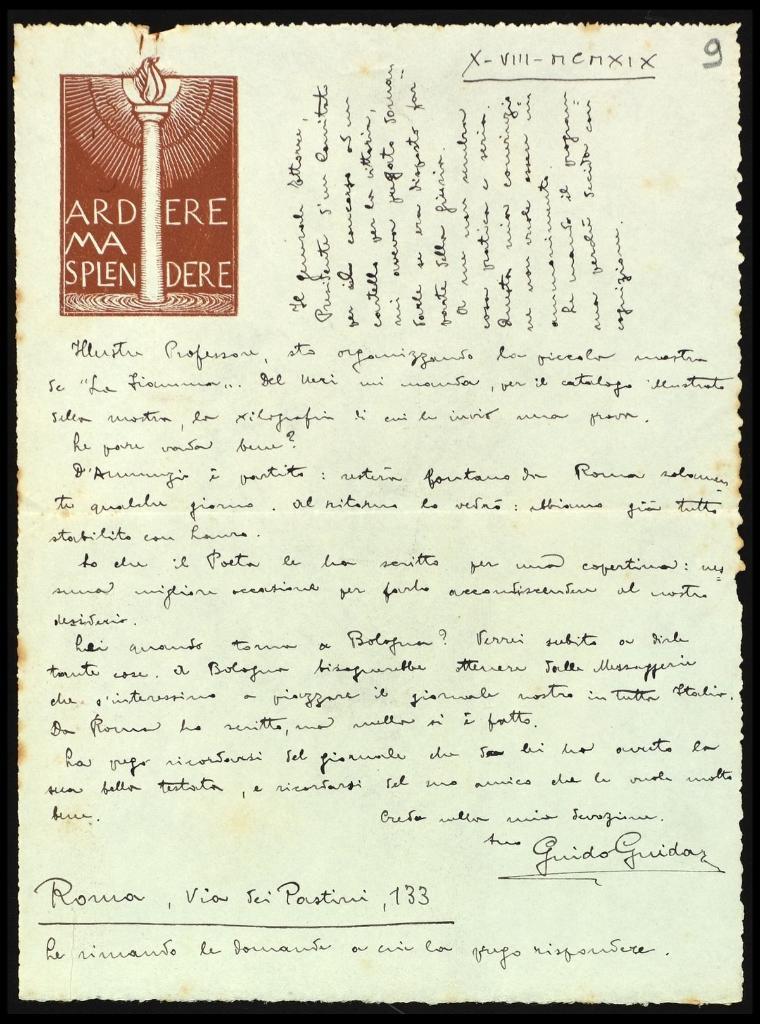 X-VIII-MCMXIX
9
ARDERE
MA
SPLENDERE
Il generale Ettorre,
Presidente d'un Comitato
per il concorso ad un
cartello per la vittoria,
mi aveva pregato doman=
darle se era disposto far
parte della giuria.
A me non sembra
cosa pratica e seria.
Questa mia convinzio
ne non vuole essere un
ammonimento.
Le mando il program=
ma perché decida con
cognizione.
Illustre Professore, sto organizzando la piccola mostra
de "La Fiamma". Del Neri mi manda, per il catalogo illustrato
della mostra, la xilografia di cui le invio una prova.
Le pare vada bene?
D'Annunzio è partito: resterà lontano da Roma solamen=
te qualche giorno. Al ritorno lo vedrò: abbiamo già tutto
stabilito con Lauro.
So che il Poeta le ha scritto per una copertina: nes=
suna migliore occasione per farlo accondiscendere al nostro
desiderio.
Lei quando torna a Bologna? Verrei subito a dirle
tante cose. A Bologna bisognerebbe ottenere dalle Messaggerie
che s'interessino a piazzare il giornale nostro in tutta Italia.
Da Roma ho scritto, ma nulla si è fatto.
La prego ricordarsi del giornale che da lei ha avuto la
sua bella testata, e ricordarsi del suo amico che le vuole molto
bene.
Creda nella mia devozione.
suo Guido Guida
Roma, Via dei Pastini, 133
Le rimando le domande a cui la prego rispondere.